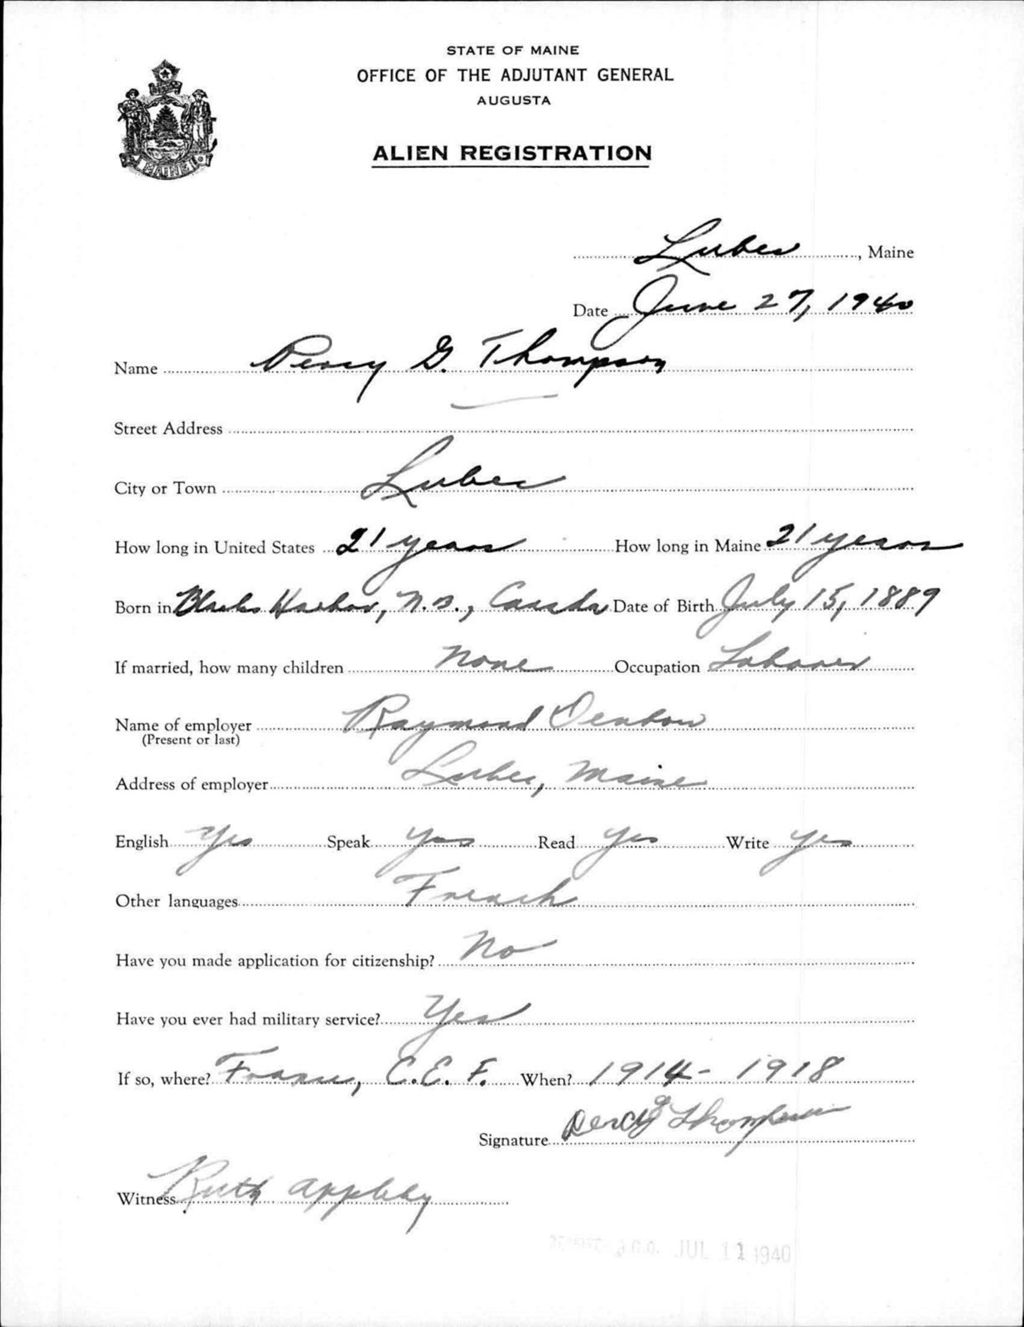 STATE OF MAINE
OFFICE OF THE ADJUTANT GENERAL
AUGUSTA
ALIEN REGISTRATION
MAINE
Lubec, Maine
Date June 27, 1940
Name Percy G. Thompson
Street Address —
City or Town Lubec
How long in United States 21 years How long in Maine 21 years
Born in Blacks Harbor, N.B., Canada Date of Birth July 15, 1889
If married, how many children None Occupation Laborer
Name of employer Raymond Denbow
(Present or last)
Address of employer Lubec, Maine
English Yes Speak Yes Read Yes Write Yes
Other languages French
Have you made application for citizenship? No
Have you ever had military service? Yes
If so, where? France, C.E.F. When? 1914-1918
Signature Percy G Thompson
Witness Ruth Appleby
A.G.O. JUL 11 1940